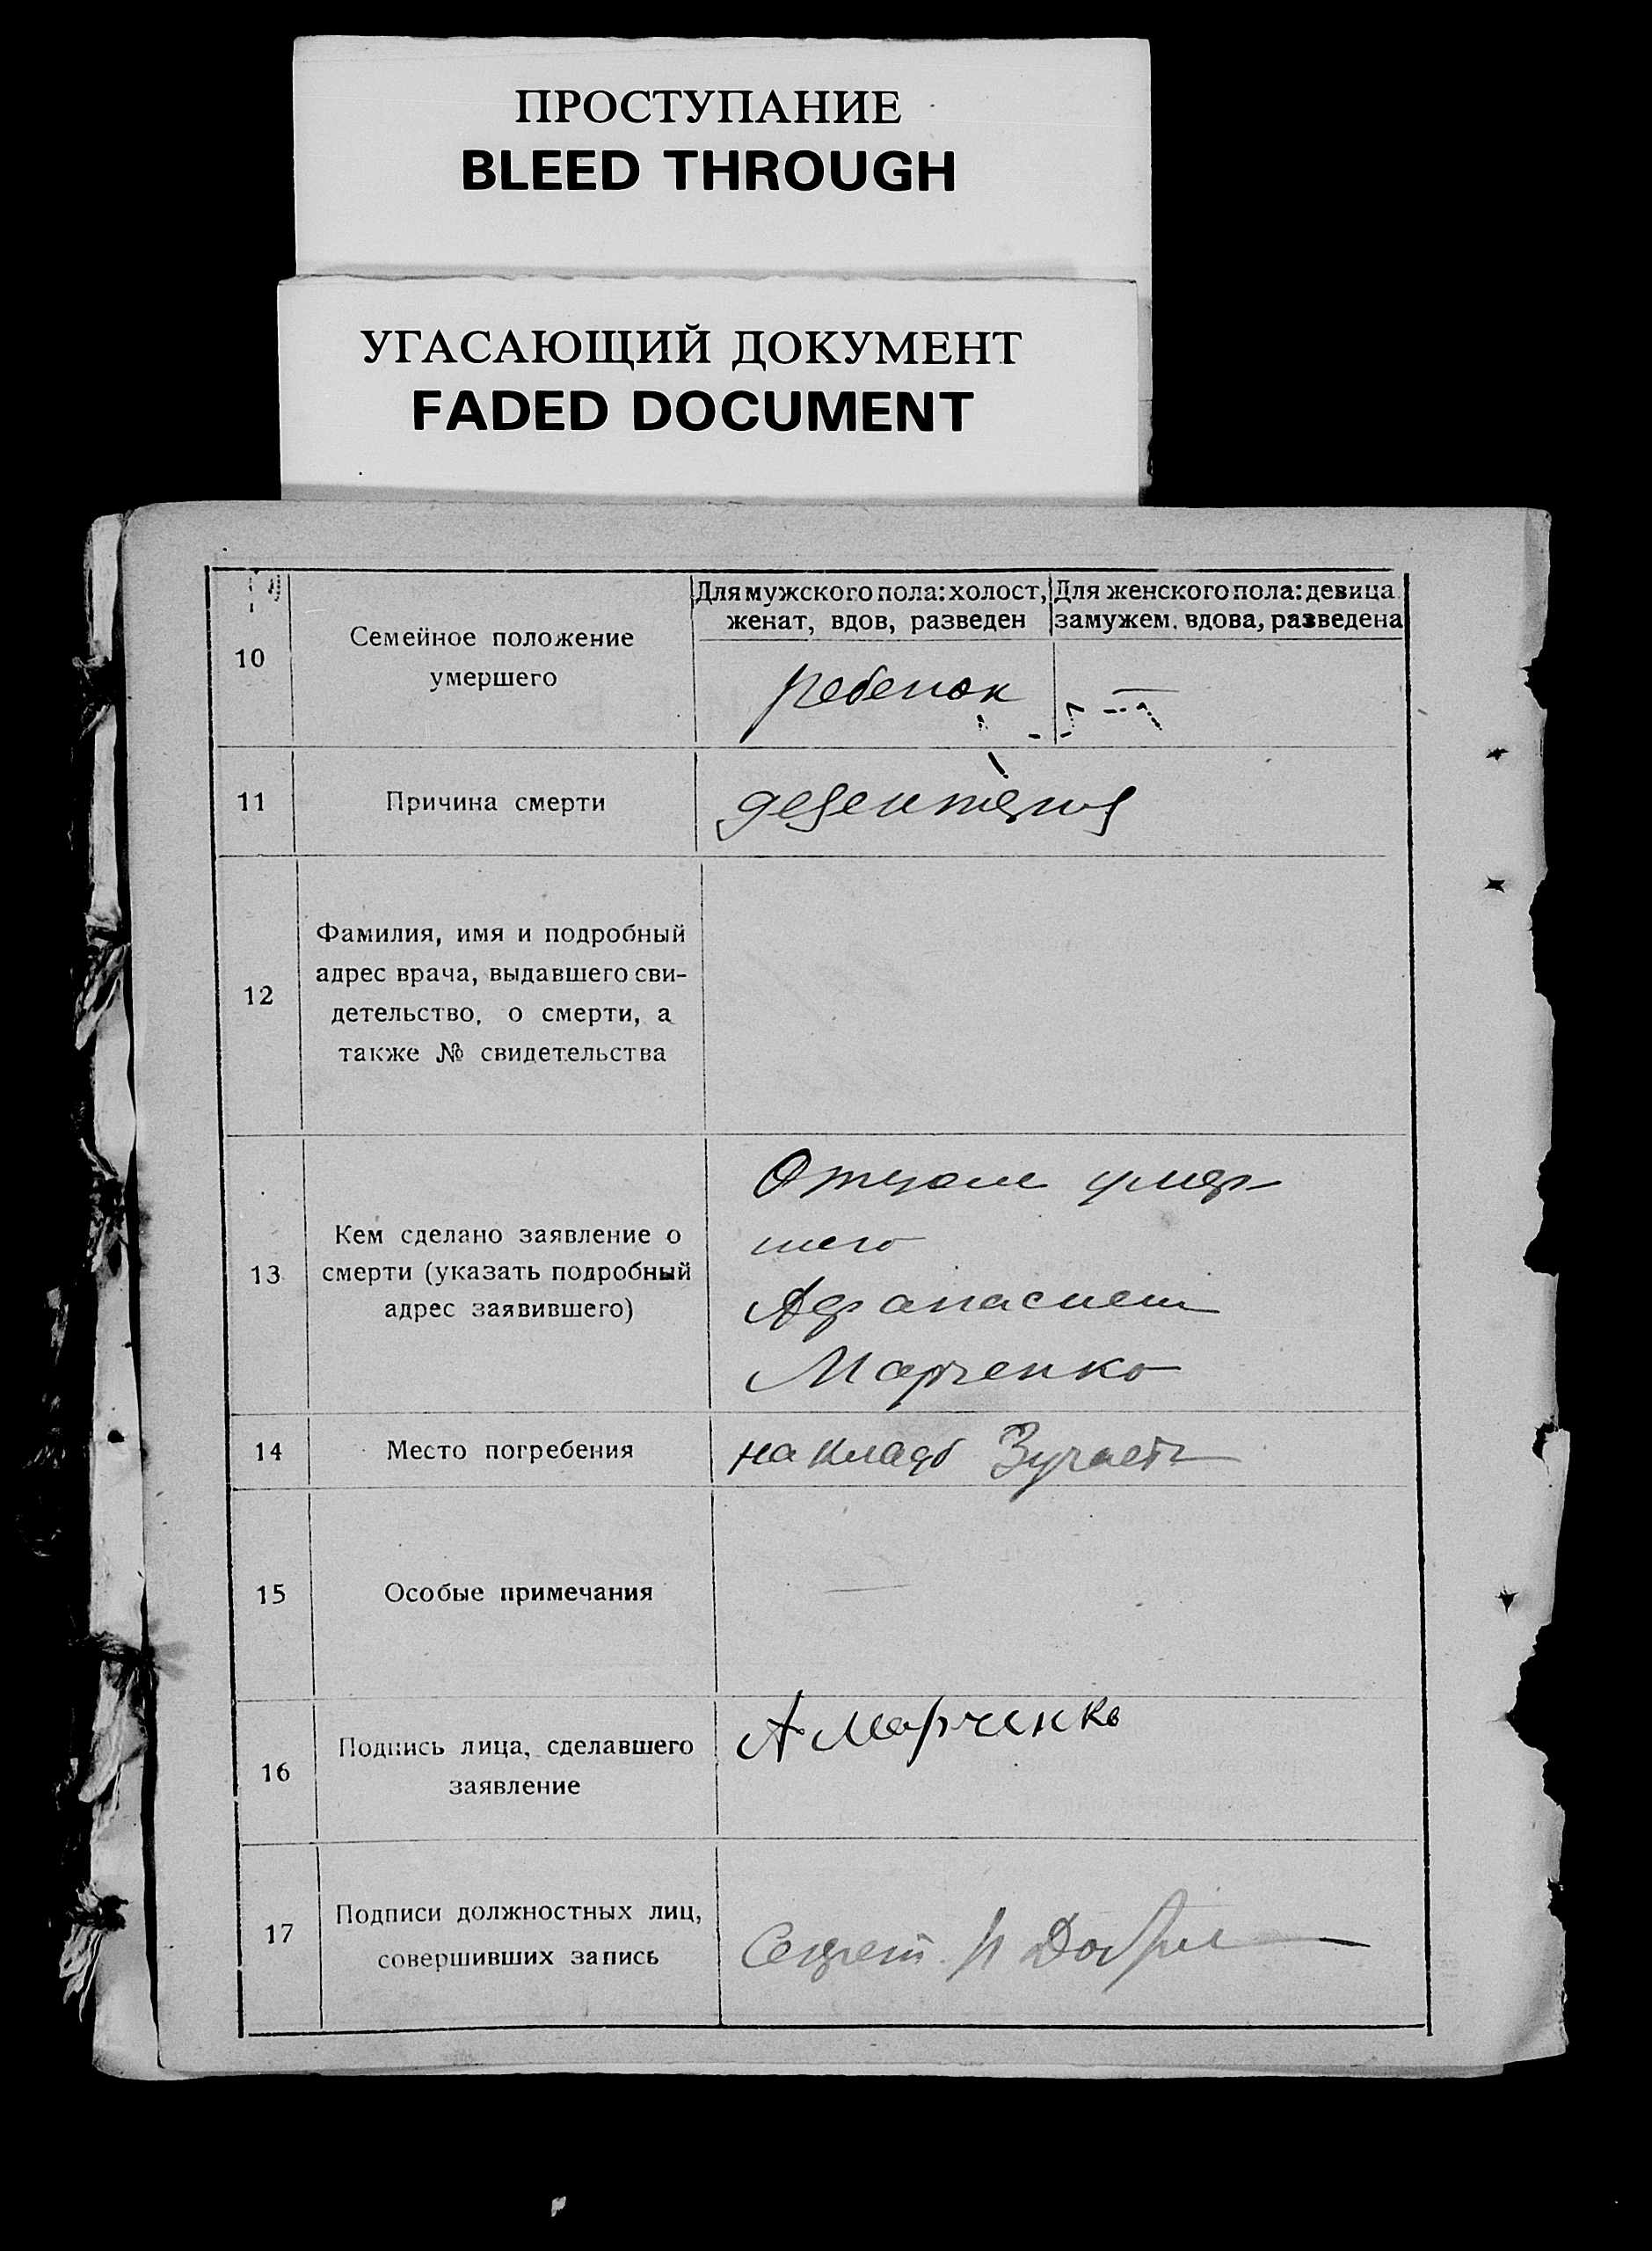 ПРОСТУПАНИЕ
BLEED THROUGH
УГАСАЮЩИЙ ДОКУМЕНТ
FADED DOCUMENT
10
Семейное положение
умершего
Для мужского пола: холост,
женат, вдов, разведен
Для женского пола: девица
замужем. вдова, разведена
ребенок
—
11
Причина смерти
дезентерия
12
Фамилия, имя и подробный
адрес врача, выдавшего сви-
детельство, о смерти, а
также № свидетельства
13
Кем сделано заявление о
смерти (указать подробный
адрес заявившего)
Отцом умер-
шего
Афанасием
Марченко
14
Место погребения
на кладб 3 участ
15
Особые примечания
—
16
Подпись лица, сделавшего
заявление
А Марченко
17
Подписи должностных лиц,
совершивших запись
Секрет.